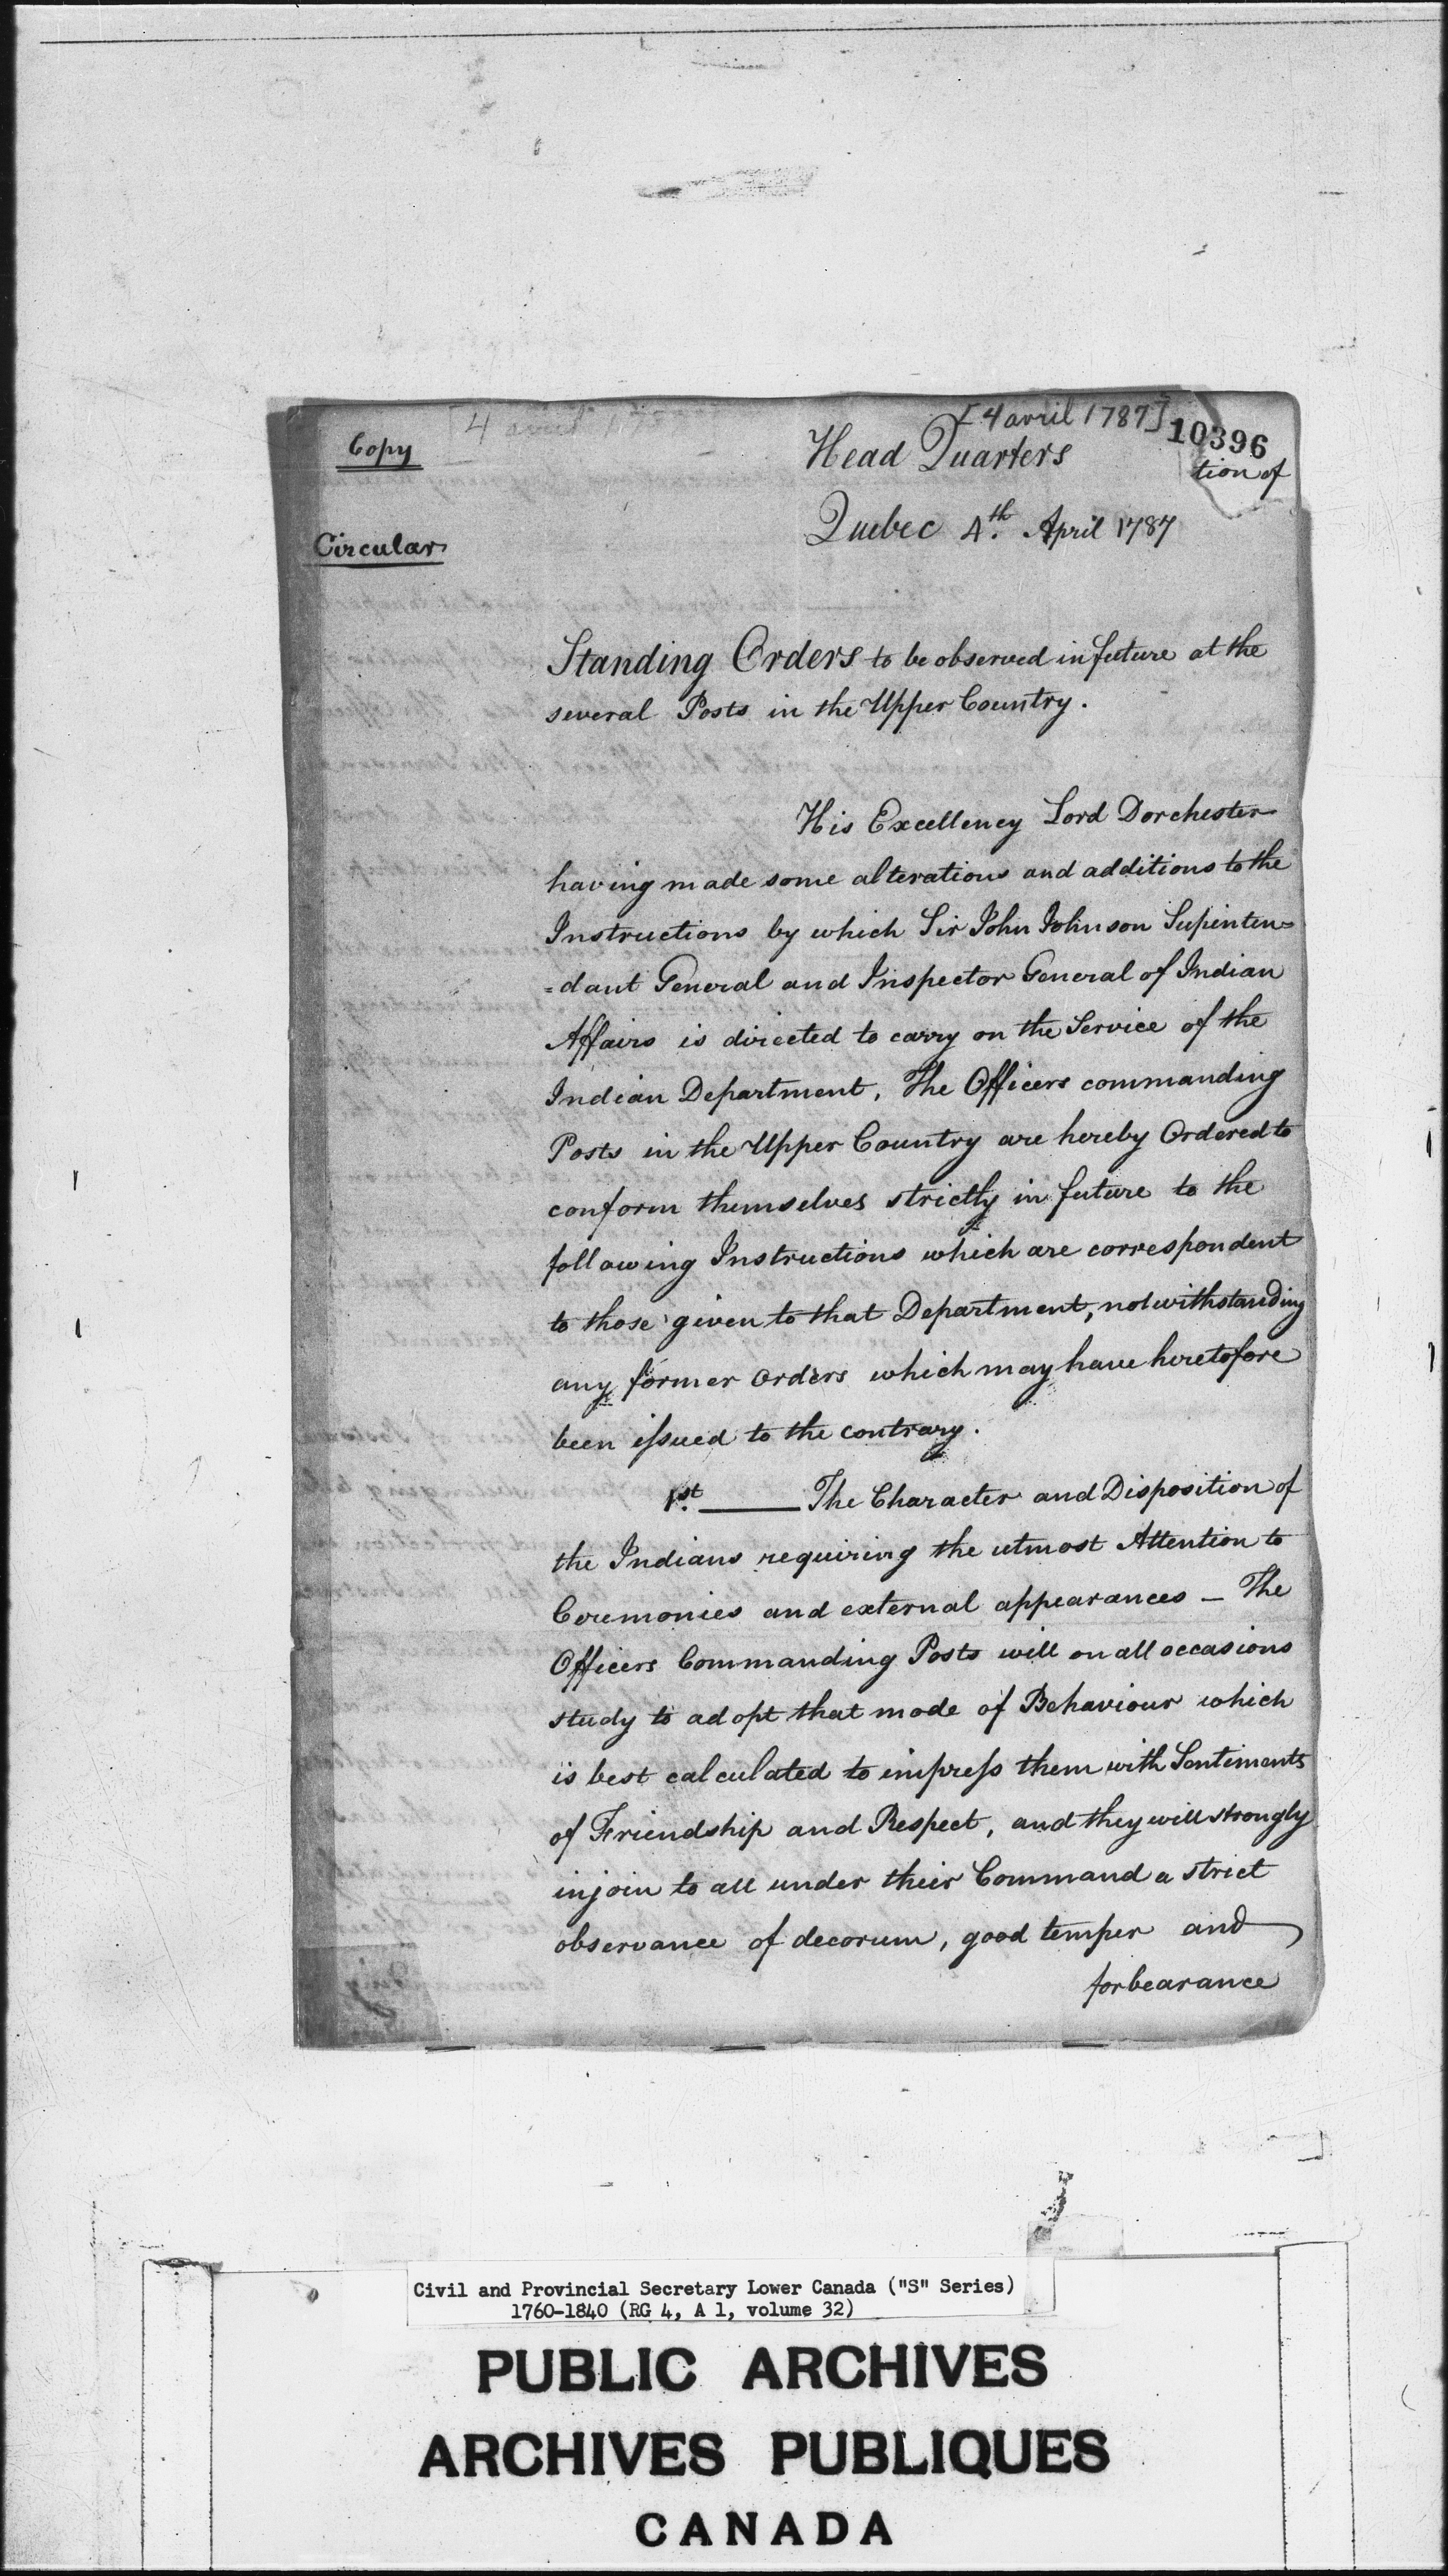 [4 avril 1787]
10396
Copy
Head Quarters
tion of
Quebec 4th. April 1787
Circular
Standing Orders to be observed in future at the
several Posts in the Upper Country.
His Excellency Lord Dorchester
having made some alterations and additions to the
Instructions by which Sir John Johnson Supinten=
=dant General and Inspector General of Indian
Affairs is directed to carry on the Service of the
Indian Department, The Officers commanding
Posts in the Upper Country are hereby Ordered to
conform themselves strictly in future to the
following Instructions which are correspondent
to those given to that Department, notwithstanding
any former orders which may have heretofore
been issued to the contrary.
1st. ——— The Character and Disposition of
the Indians requiring the utmost Attention to
Ceremonies and external appearances — The
Officers Commanding Posts will on all occasions
study to adopt that mode of Behaviour which
is best calculated to impress them with Sentiments
of Friendship and Respect, and they will strongly
injoin to all under their Command a strict
observance of decorum, good temper and
forbearance
Civil and Provincial Secretary Lower Canada ("S" Series)
1760-1840 (RG 4, A 1, volume 32)
PUBLIC ARCHIVES
ARCHIVES PUBLIQUES
CANADA